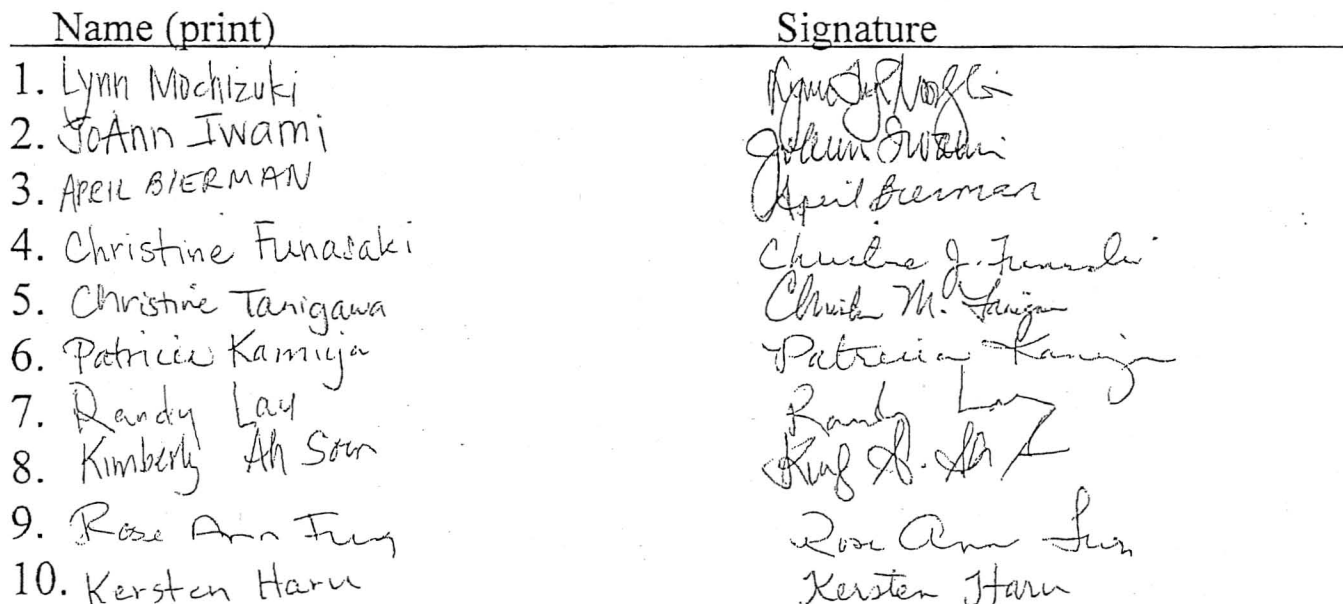 Name (print) Signature
1. Lynn Mochizuki
2. JoAnn Iwami JoAnn Iwami
3. APRIL BIERMAN April Bierman
4. Christine Funasaki Christine J. Funasaki
5. Christine Tanigawa M.
6. Patricia Kamiya Patricia Kamiya
7. Randy Lau Randy Lau
8. Kimberly Ah Soon S. Ah
9. Rose Ann Fung Rose Ann Fung
10. Kersten Haru Kersten Haru